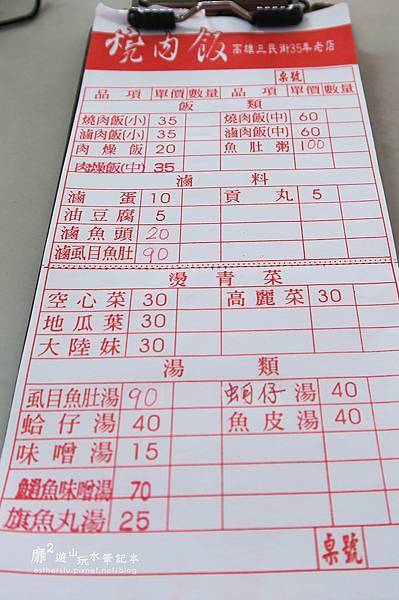 燒肉飯 高雄三民街35年老店
桌號
品項 單價 數量 品項 單價 數量
飯類
燒肉飯(小) 35 燒肉飯(中) 60
滷肉飯(小) 35 滷肉飯(中) 60
肉燥飯 20 魚肚粥 100
肉燥飯(中) 35
滷料
滷蛋 10 貢丸 5
油豆腐 5
滷魚頭 20
滷虱目魚肚 90
燙青菜
空心菜 30 高麗菜 30
地瓜葉 30
大陸妹 30
湯類
虱目魚肚湯 90 蚵仔湯 40
蛤仔湯 40 魚皮湯 40
味噌湯 15
魚味噌湯 70
旗魚丸湯 25
桌號
靡2遊山玩水筆記本
esthersly.pixnet.net/blog